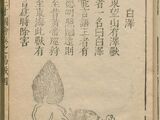 白澤
東望山有澤獸
者一名曰白澤
能言語王者有
德明照幽遠則
至昔黃帝巡狩
至東海此獸有
言為時除害